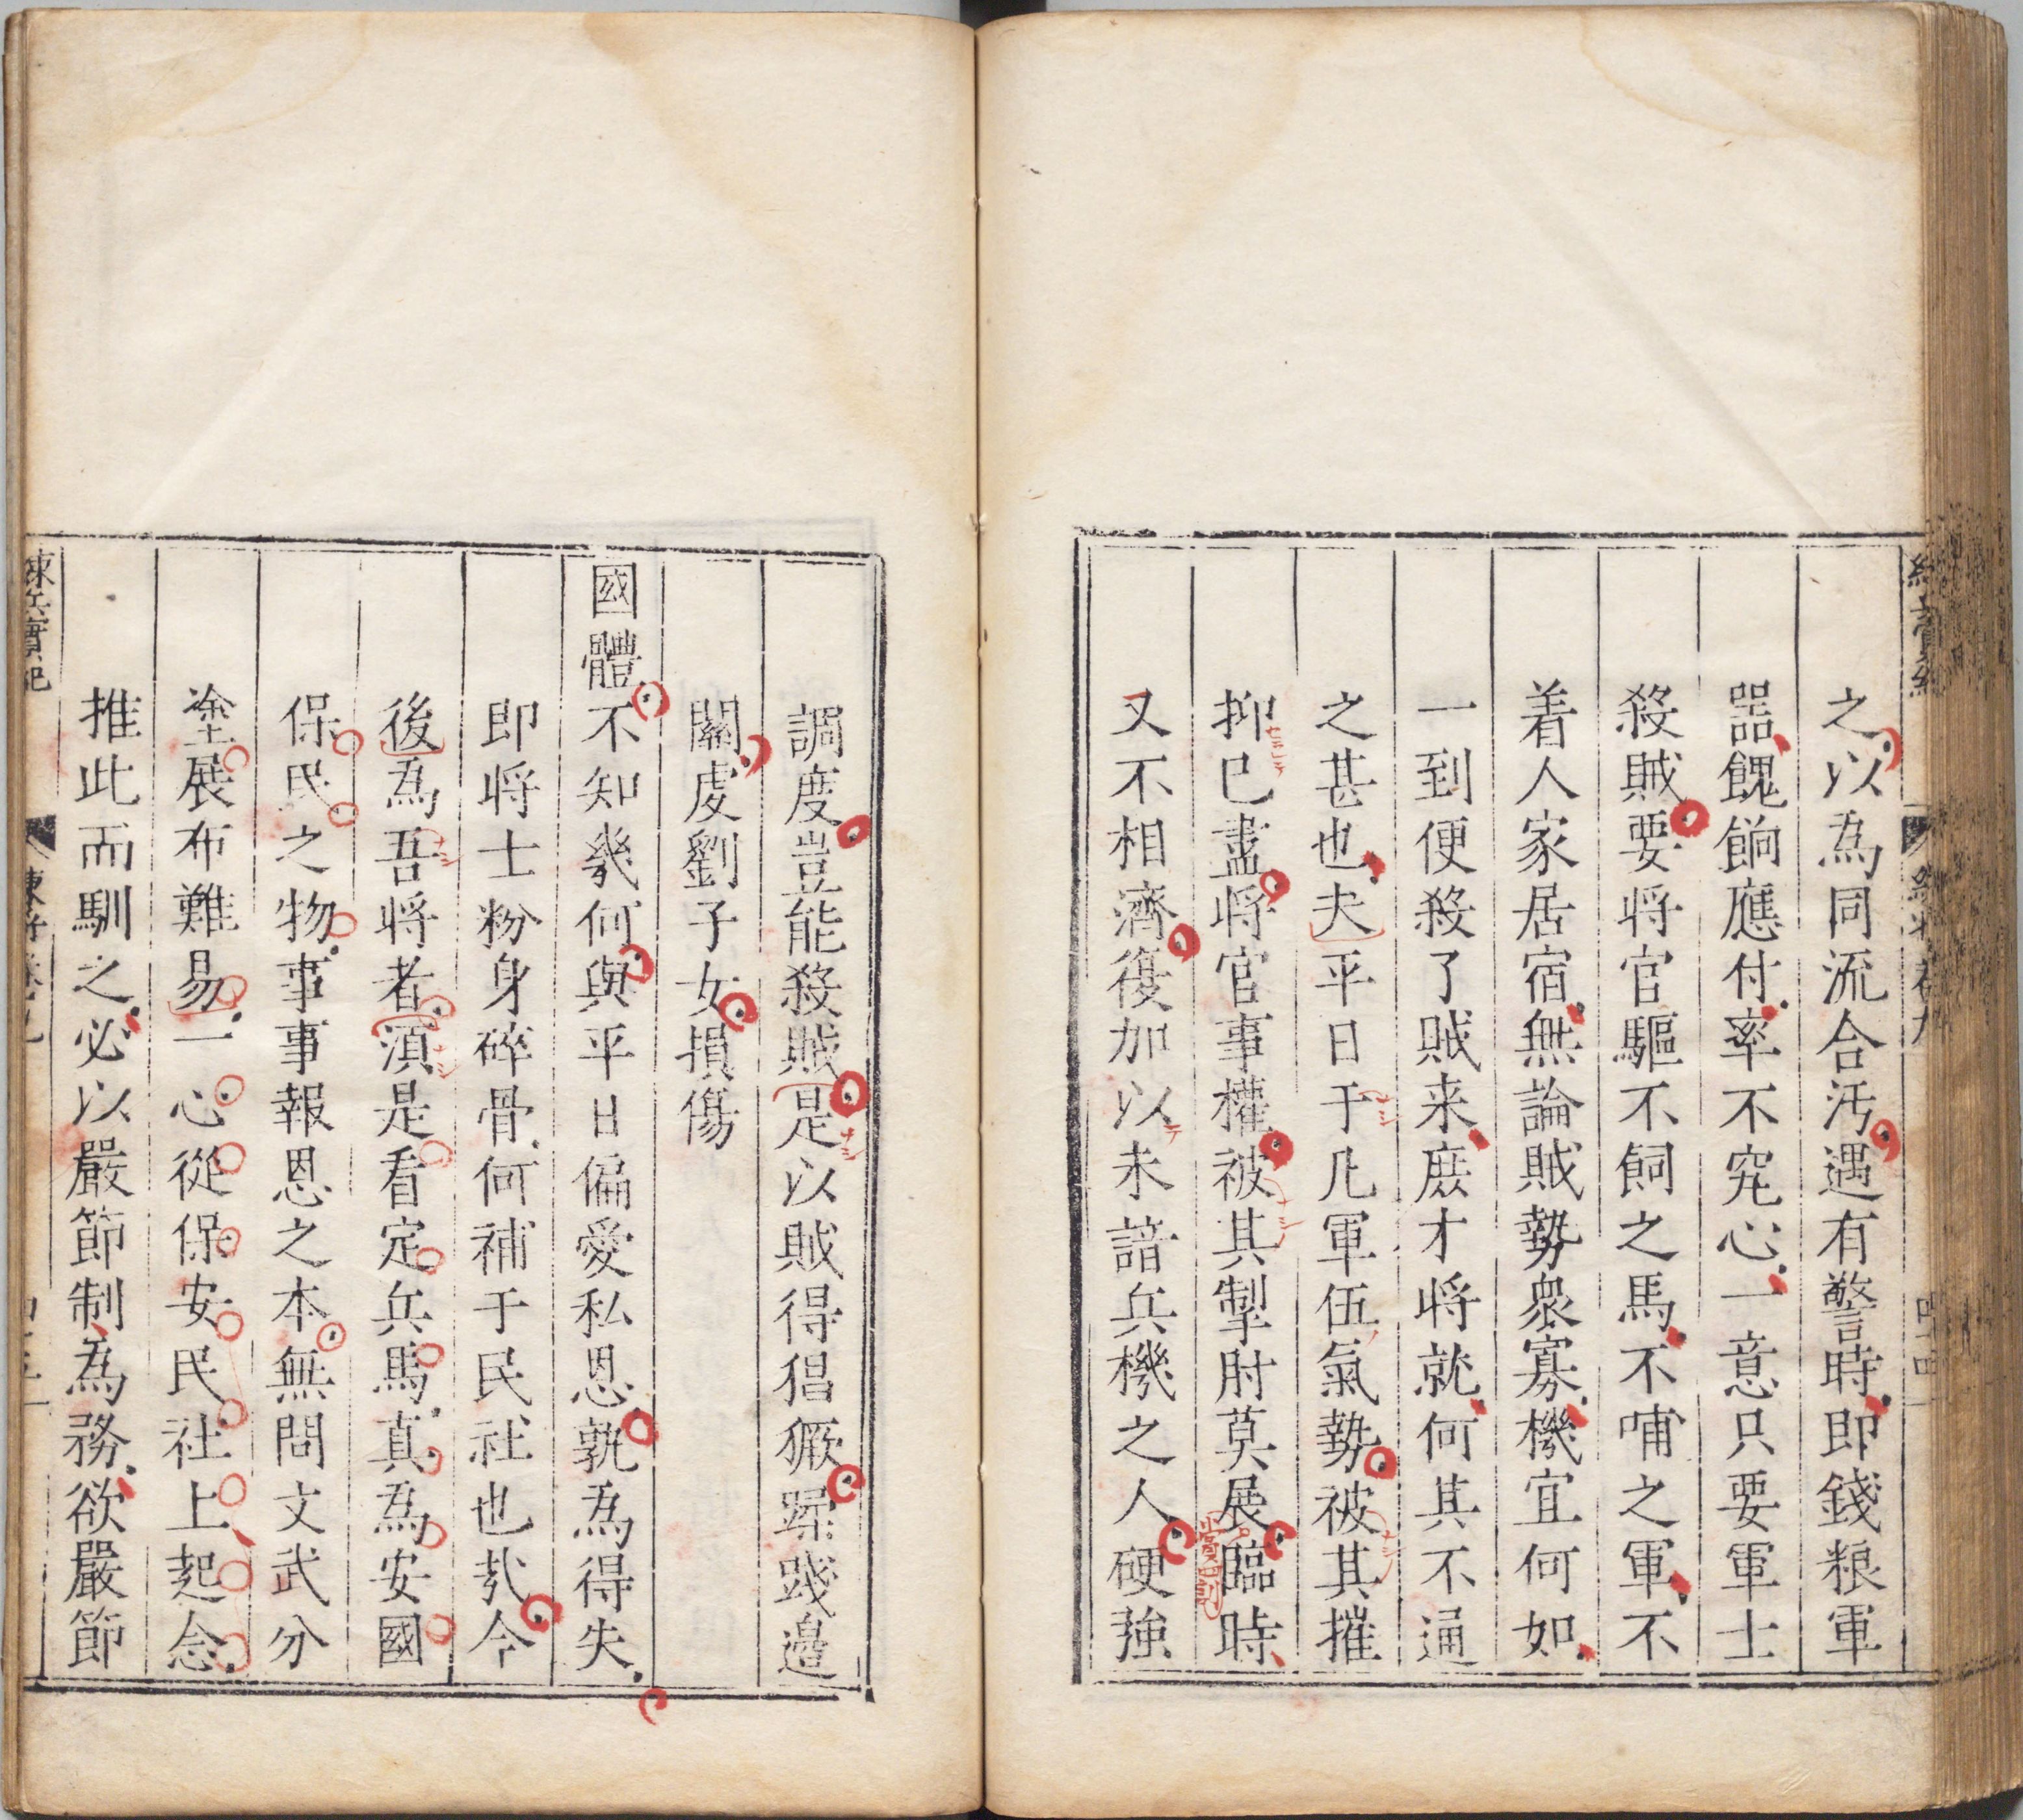 之以為同流合汚遇有警時即錢粮軍
噐餽餉應付率不究心一意只要軍士
殺賊要将官驅不飼之馬不哺之軍不
着人家居宿無論賊勢衆寡機宜何如
一到便殺了賊来庻才将就何其不通
之甚也夫平日于凢軍伍氣勢被其摧
抑已盡将官事權被其掣肘莫展臨時
又不相濟復加以未諳兵機之人硬強
調度豈能殺賊是以賊得倡獗蹂踐邉
關虔劉子女損傷
國體不知幾何與平日偏愛私恩孰為得失
即将士粉身碎骨何補于民社也㢤今
後為吾将者湏是看定兵馬真為安國
保民之物事事報恩之本無問文武分
塗展布難易一心從保安民社上起念
推此而馴之必以嚴節制為務欲嚴節
練兵實紀